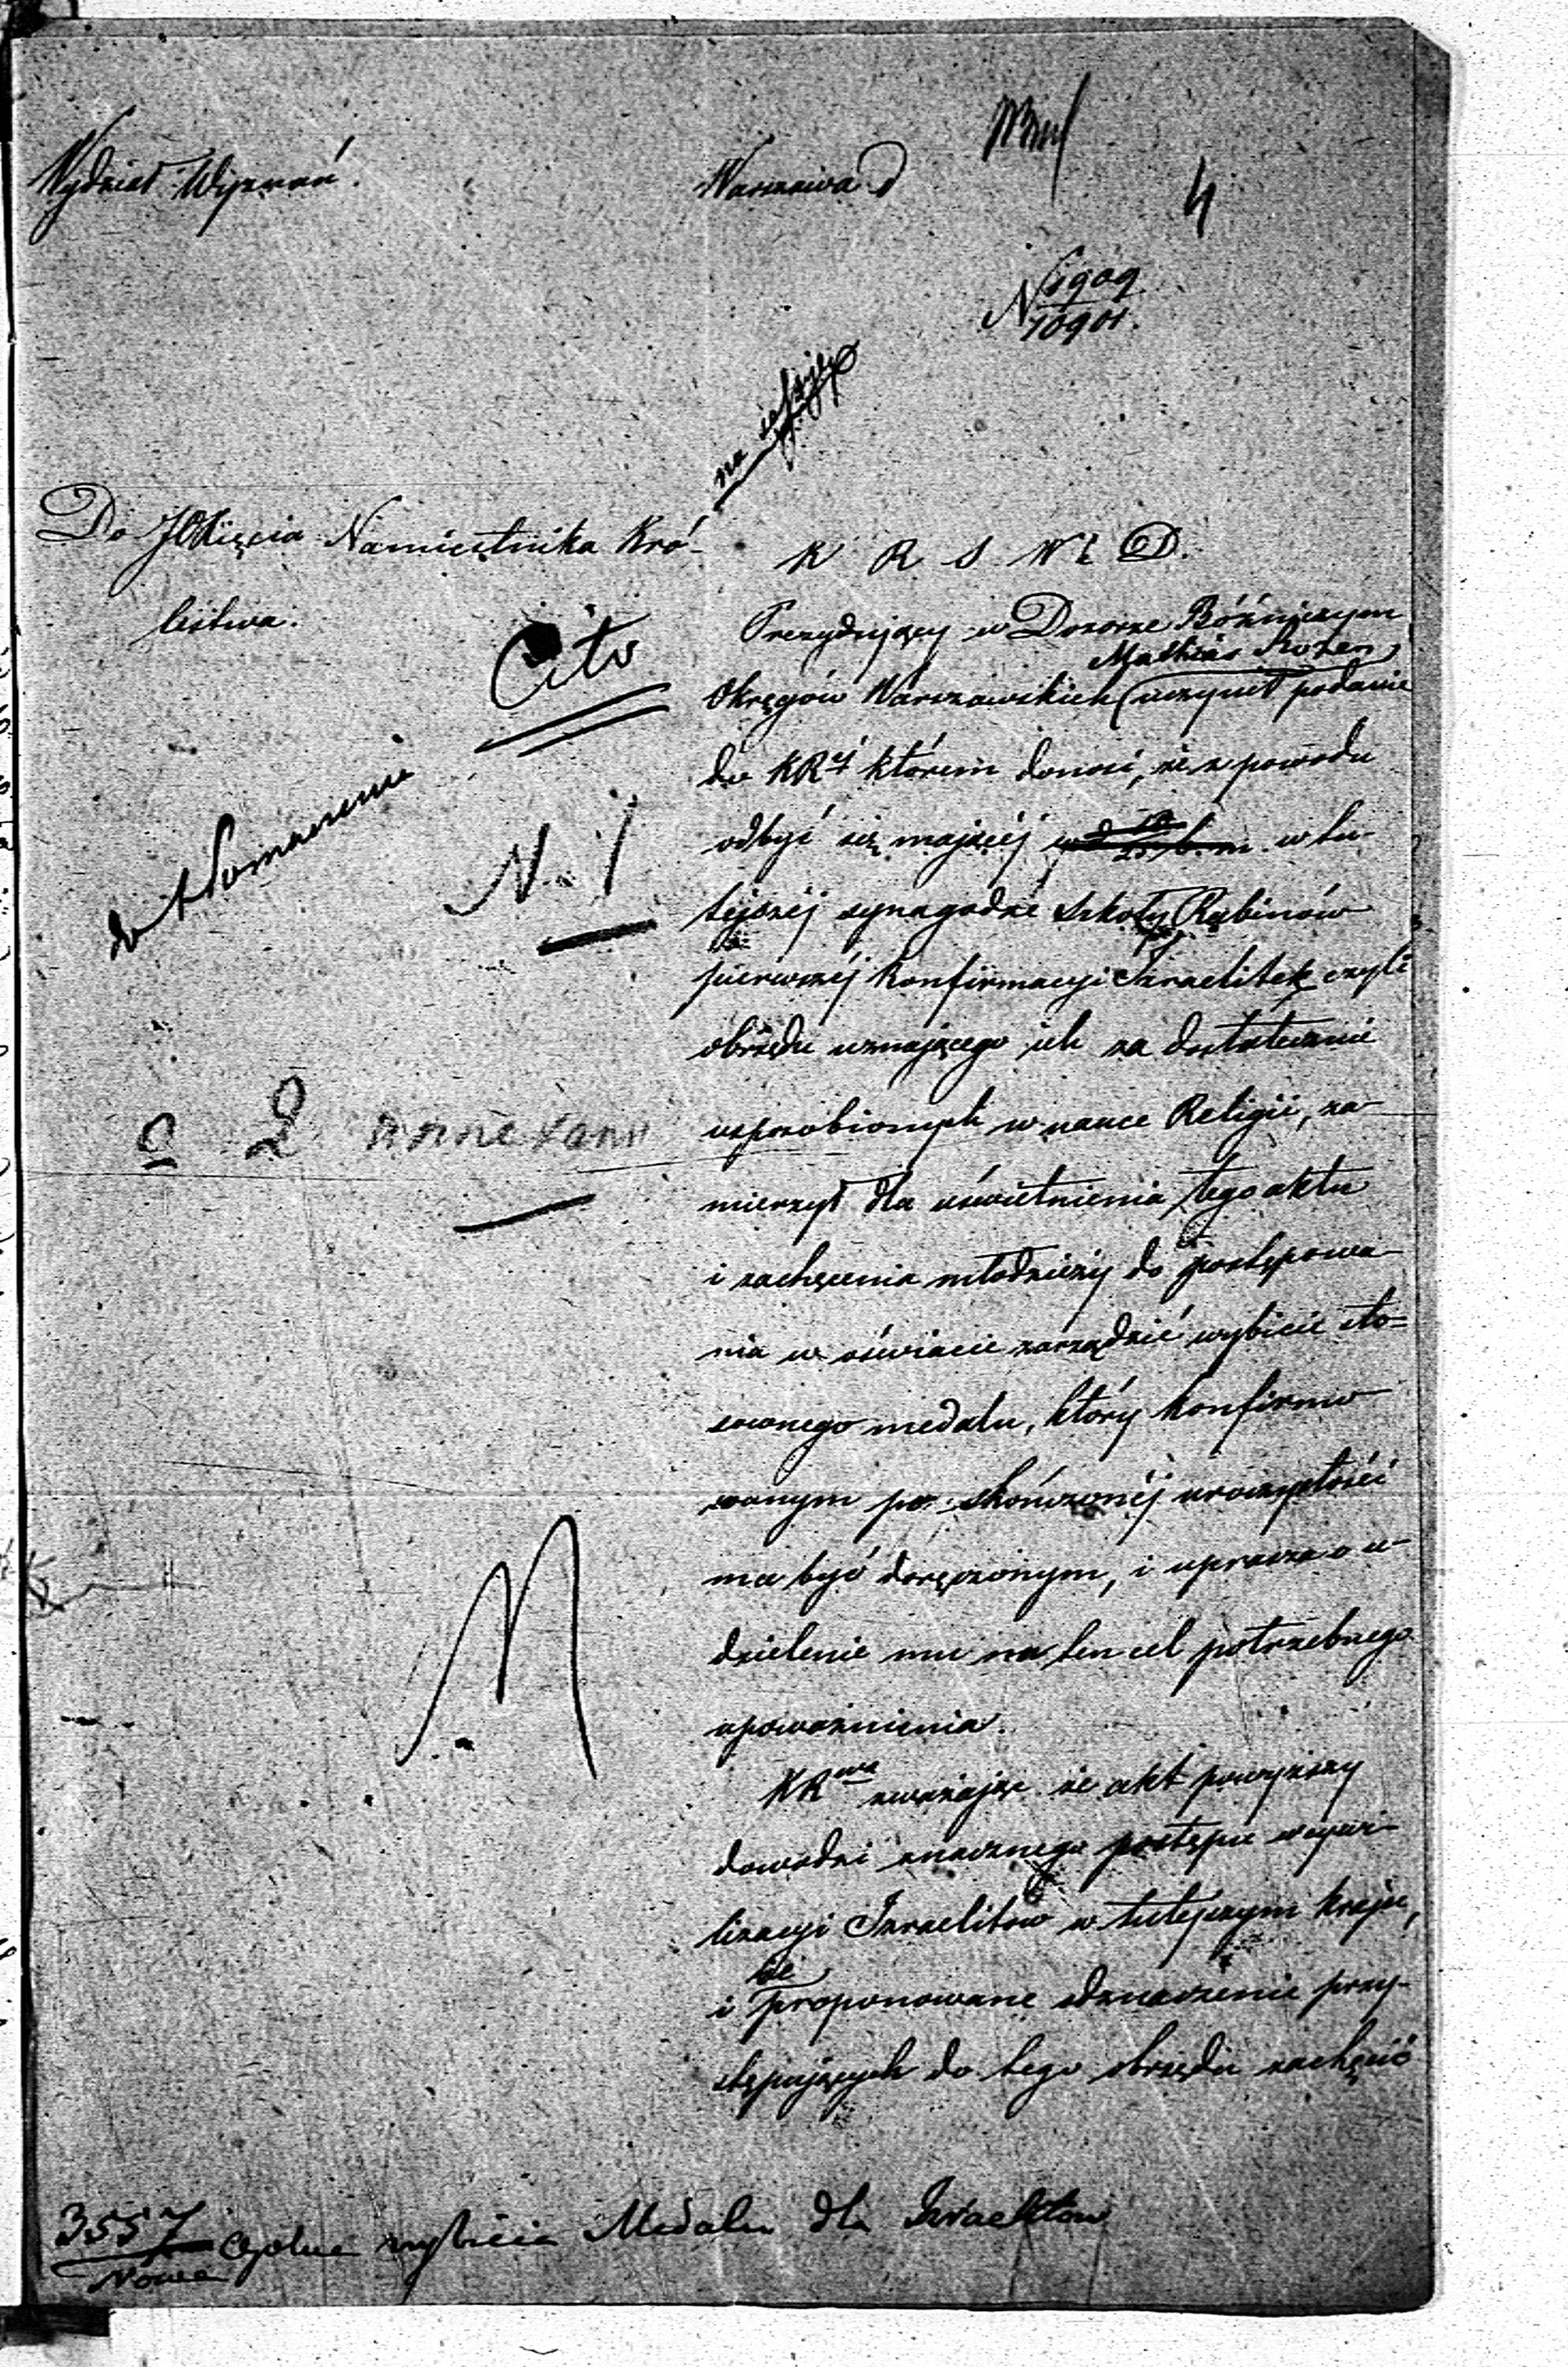 Wydział Wyznań.
Warszawa d
4
N 6909
10901.
na sessyę
Do JOXięcia Namiestnika Kró-
lestwa.
Cito
do tłomaczenia
N. 1
o 2 annexami
K R S W i D.
Prezydujący w Dozorze Bóżniczym
Mathias Rozen
Okręgów Warszawskich uczynił podanie
do KRyi którem donosi, że z powodu
odbyć się mającéj w d. b. m. w tu-
tejszéj synagodze szkoły Rabinów
pierwszéj konfirmacyi Izraelitek czyli
obrzędu uznającego ich za dostatecznie
usposobionych w nauce Religii, za-
mierzył dla uświetnienia tego aktu
i zachęcenia młodzieży do postępowa-
nia w oświacie zarządzić wybicie sto-
sownego medalu, który konfirmo-
wanym po skończonéj uroczystości
ma być doręczonym, i uprasza o u-
dzielenie mu na ten cel potrzebnego
upoważnienia.
KRwa zważając że akt powyższy
dowodzi znacznego postępu w cywi-
lizacyi Izraelitów w tutejszym kraju,
że
i proponowane odznaczenie przy-
stępujących do tego obrzędu zachęcić
3557
Nowe
wybicia Medalu dla Izraelitów